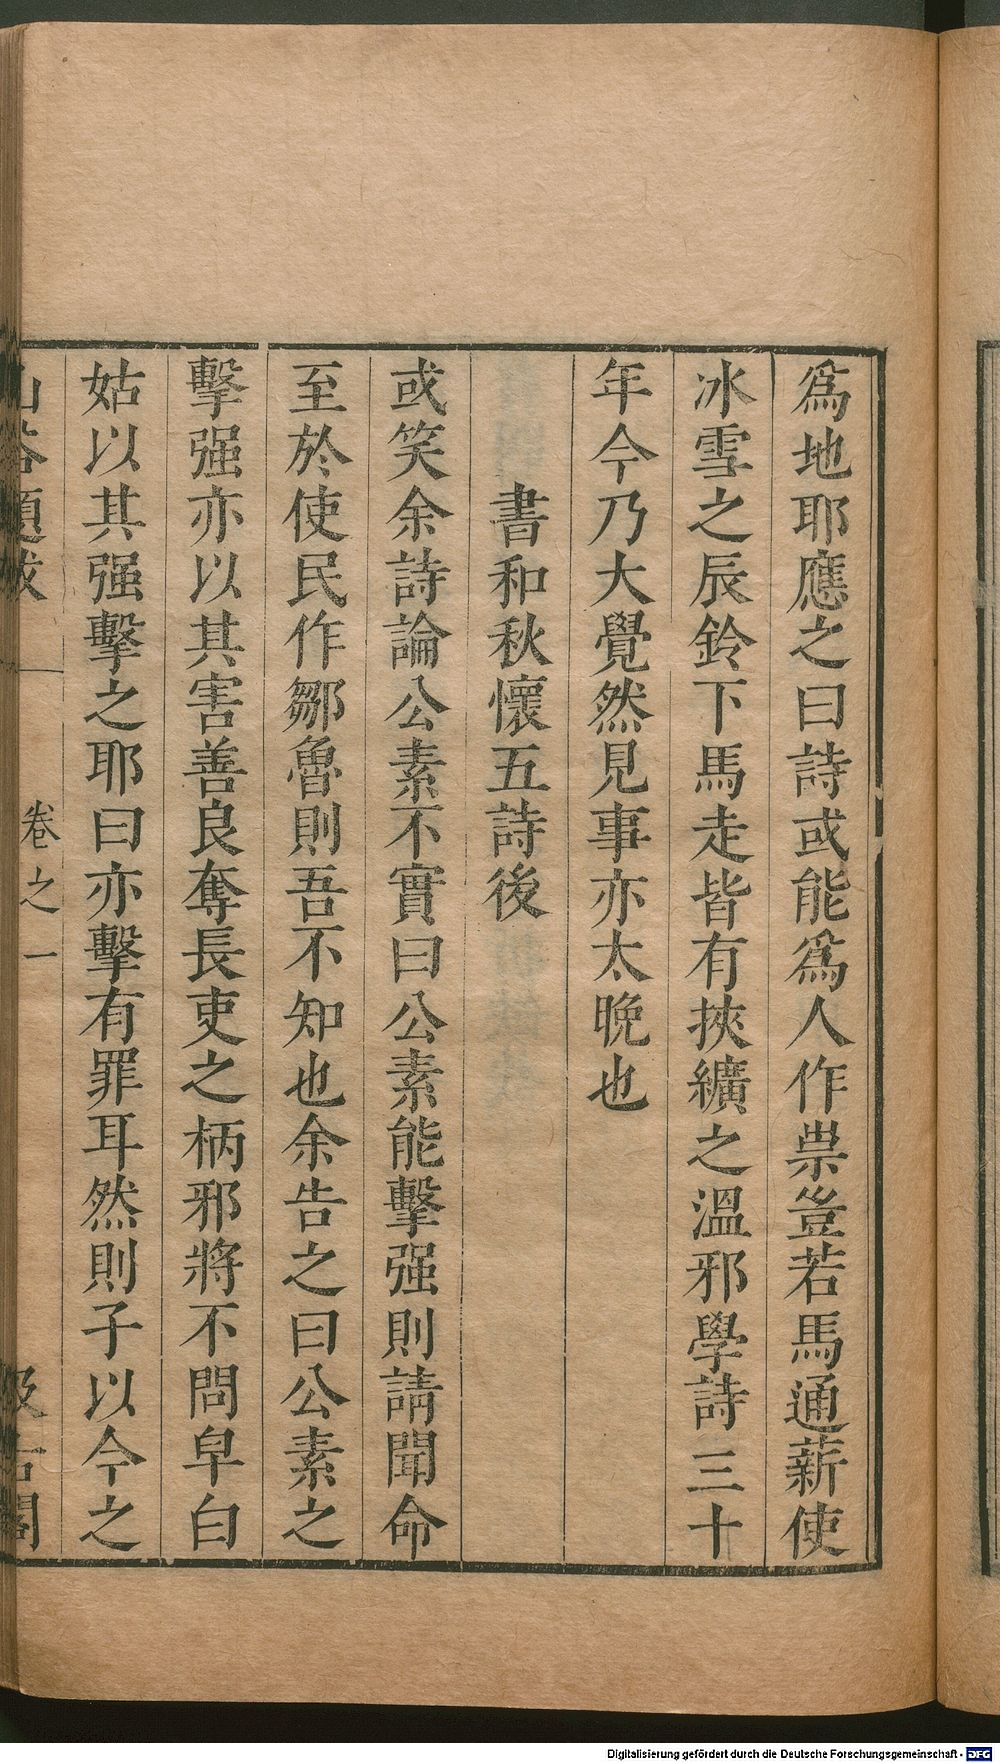 爲地耶應之曰詩或能爲人作祟豈若馬通薪使
冰雪之辰鈴下馬走皆有挾纊之溫邪學詩三十
年今乃大覺然見事亦太晚也
書和秋懷五詩後
或笑余詩論公素不實曰公素能擊强則請聞命
至於使民作鄒魯則吾不知也余告之曰公素之
擊强亦以其害善良奪長吏之柄邪將不問皁白
姑以其强擊之耶曰亦擊有罪耳然則子以今之
山谷題跋
卷之一
汲古閣
Digitalisierung gefördert durch die Deutsche Forschungsgemeinschaft - DFG